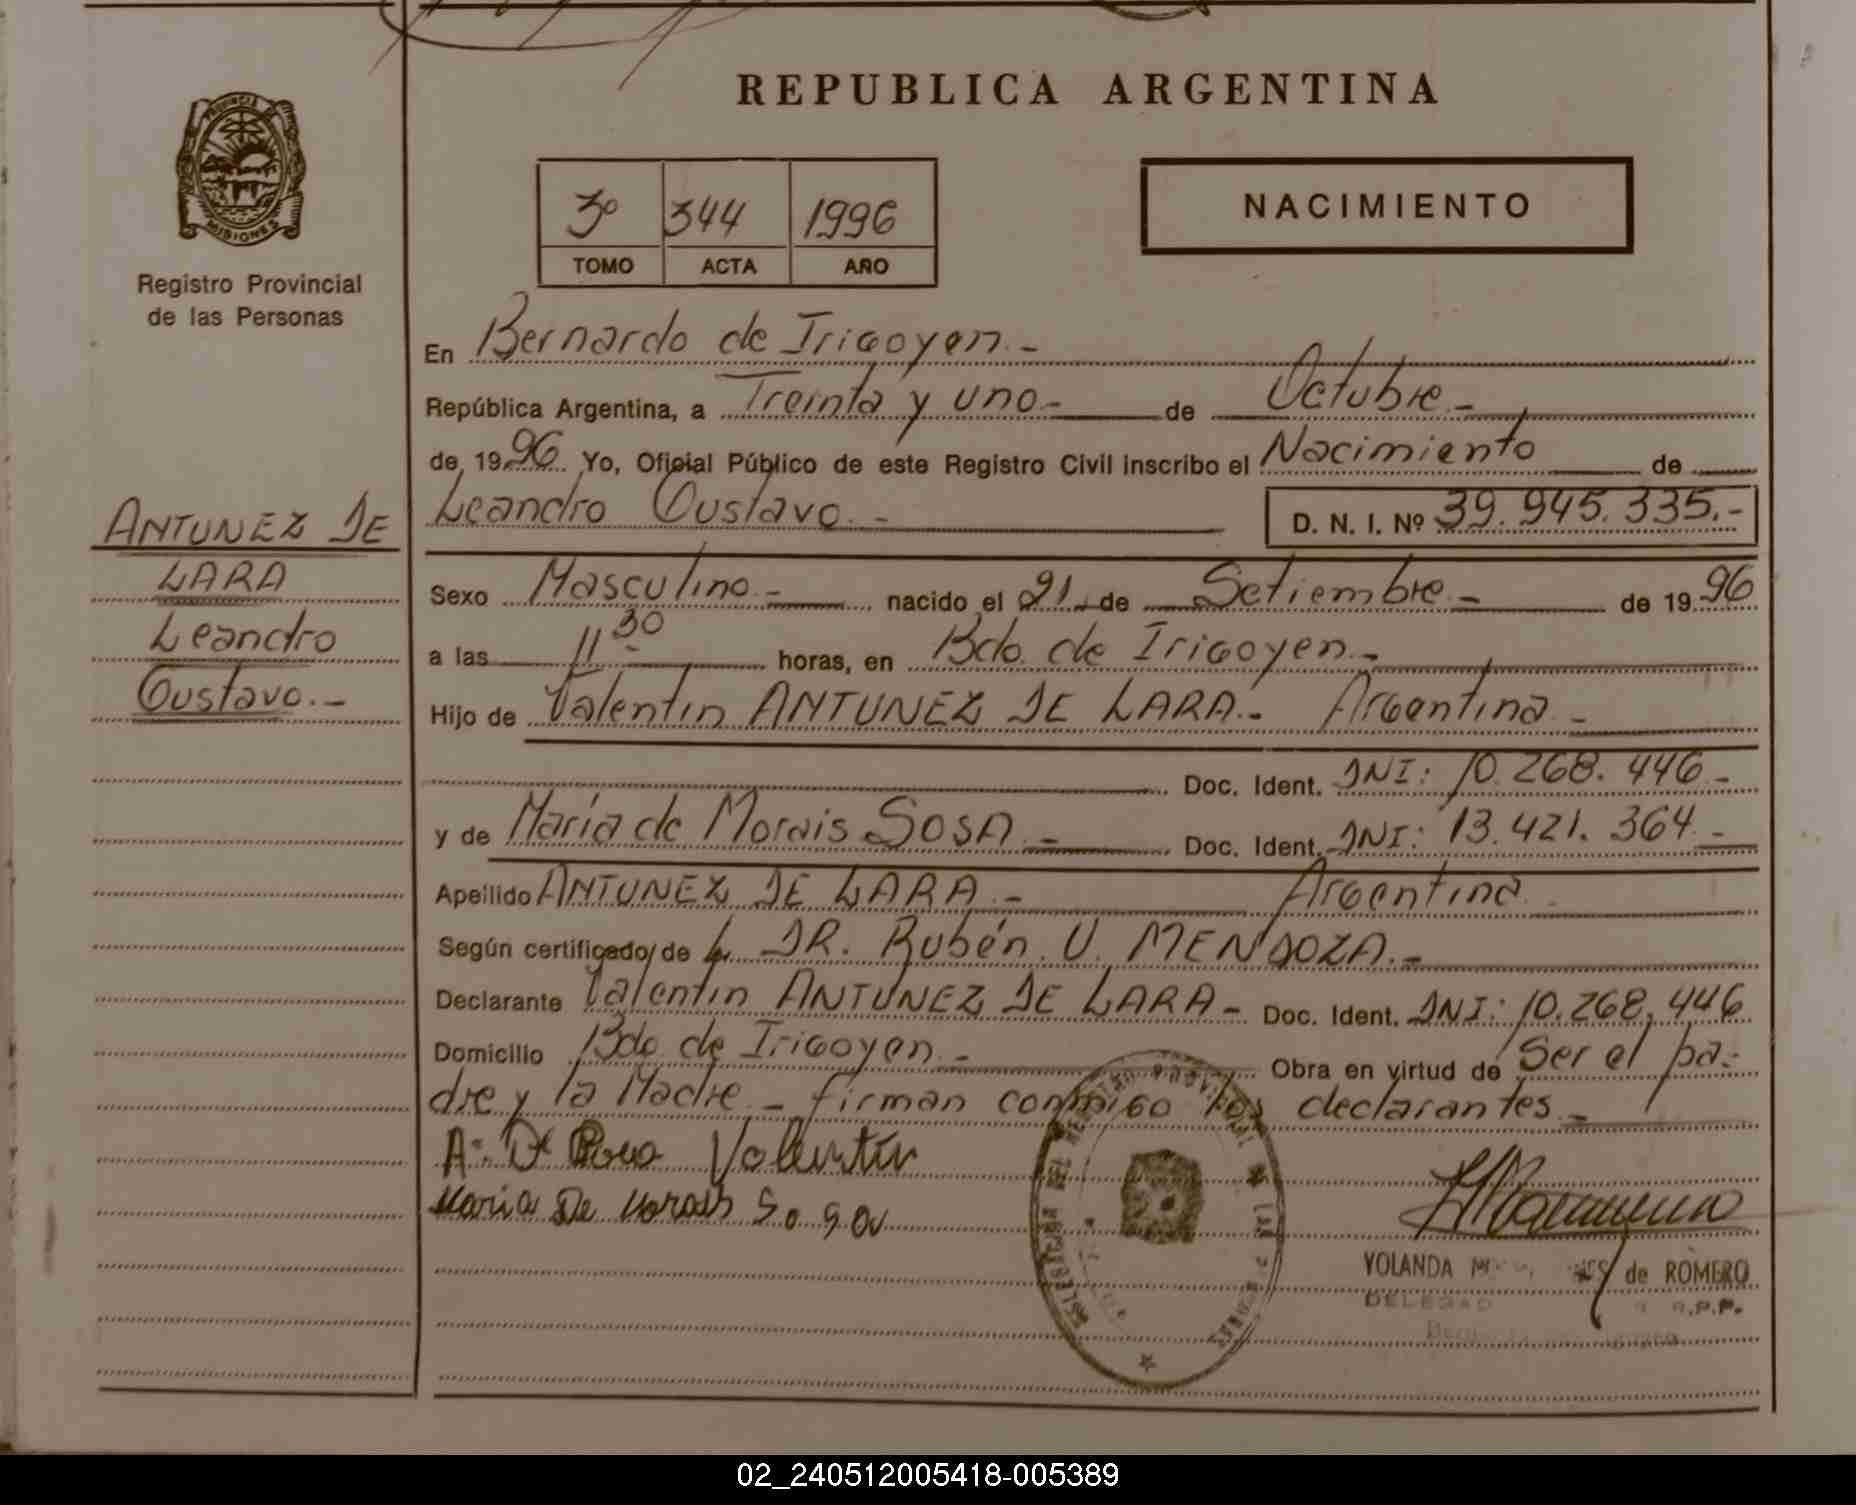 REPUBLICA ARGENTINA
PROVINCIA DE
MISIONES
Registro Provincial
de las Personas
3º 344 1996
TOMO ACTA AÑO
NACIMIENTO
En Bernardo de Irigoyen.-
República Argentina, a Treinta y uno.- de Octubre.-
de 1996. Yo, Oficial Público de este Registro Civil inscribo el Nacimiento de
Leandro Gustavo.- D. N. I. Nº 39.945.335.-
ANTUNEZ DE
LARA
Leandro
Gustavo.-
Sexo Masculino.- nacido el 21 de Setiembre.- de 1996
a las 11 30 horas, en Bdo. de Irigoyen.-
Hijo de Valentin ANTUNEZ DE LARA.- Argentina.-
Doc. Ident. DNI: 10.268.446.-
y de María de Morais SOSA.- Doc. Ident. DNI: 13.421.364.-
Apellido ANTUNEZ DE LARA.- Argentina
Según certificado de DR. Rubén U. MENDOZA.-
Declarante Valentin ANTUNEZ DE LARA- Doc. Ident. DNI: 10.268.446
Domicilio Bdo de Irigoyen.- Obra en virtud de Ser el pa-
dre y la Madre.- firman conmigo los declarantes.-
Valentín
Maria De Morais Sosa
YOLANDA de ROMERO
R.P.P.
02_240512005418-005389